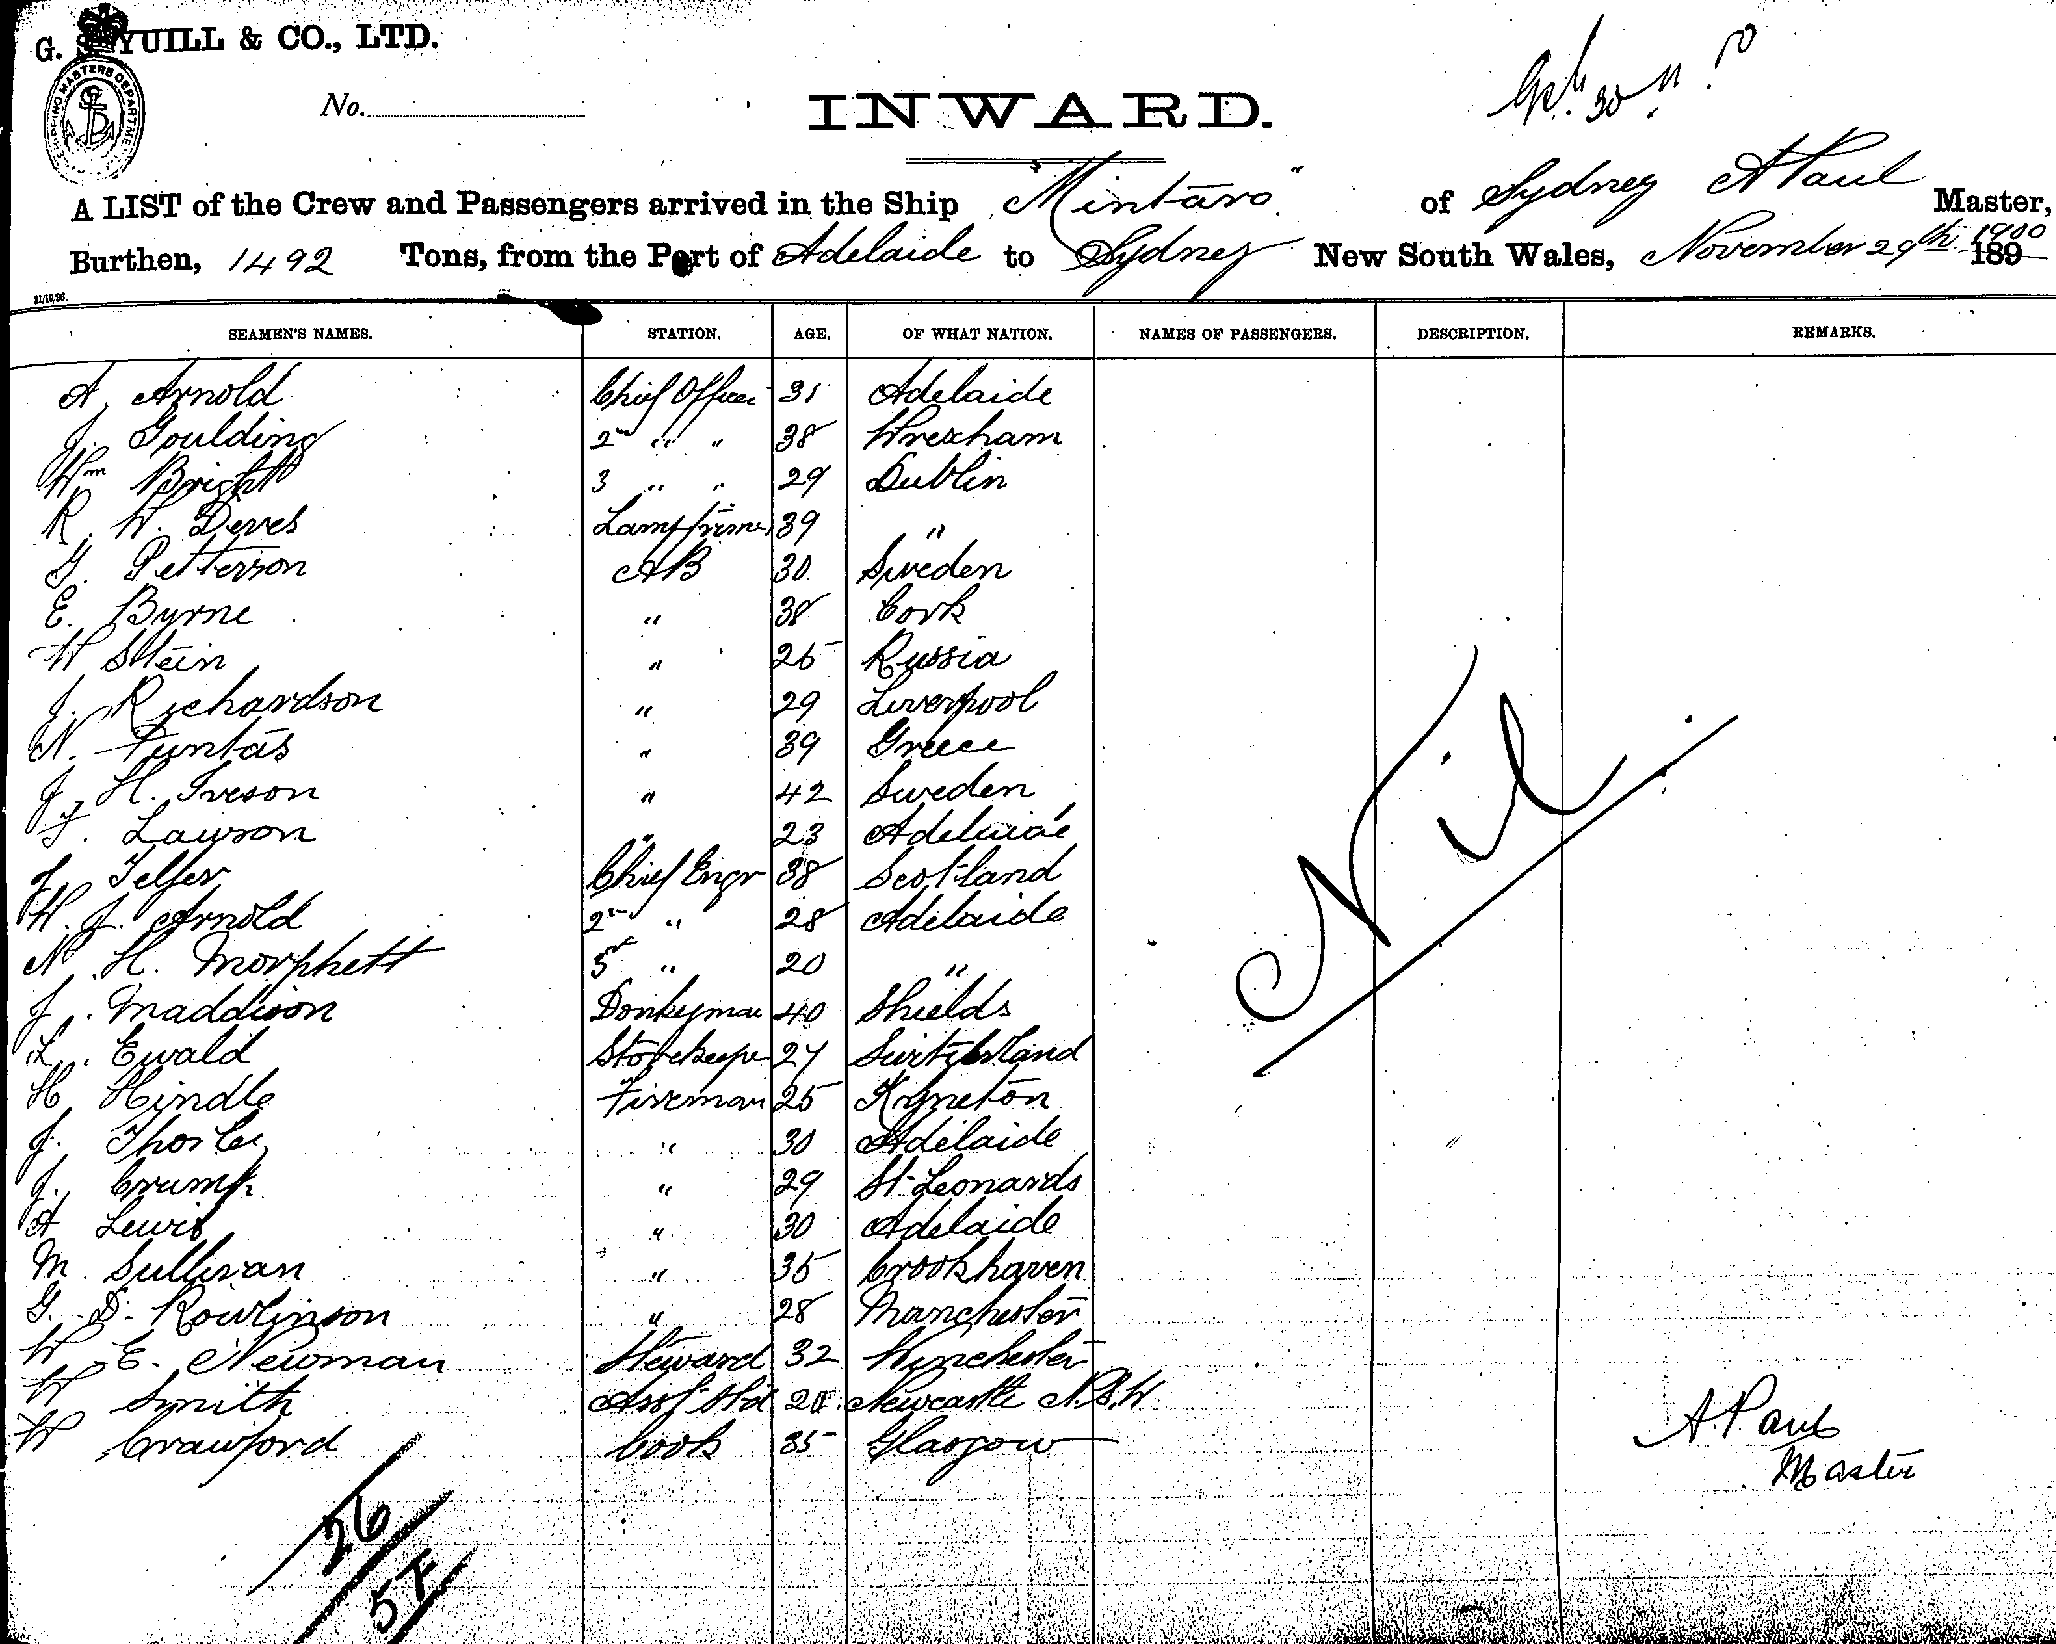 G. S. YUILL & CO., LTD.
SHIPPING MASTERS DEPARTMENT
No.
INWARD.
30 11
A LIST of the Crew and Passengers arrived in the Ship "Mintaro" of Sydney A Paul Master,
Burthen, 1492 Tons, from the Port of Adelaide to Sydney New South Wales, November 29th 1900 189
21/10/96.
SEAMEN'S NAMES. STATION. AGE. OF WHAT NATION. NAMES OF PASSENGERS. DESCRIPTION. REMARKS.
A. Arnold Chief Officer 31 Adelaide
J. Goulding 2nd " " 38 Wrexham
Wm Bright 3 " " 29 Dublin
R. W. Deves Lamptrimer 39 "
G. Petterson AB 30 Sweden
E. Byrne " 38 Cork
W Stein " 25 Russia
J. Richardson " 29 Liverpool
N. Funtas " 39 Greece
J. H. Iveson " 42 Sweden
J. Lawson " 23 Adelaide
J. Telfer Chief Engr 38 Scotland
W. J. Arnold 2nd " 28 Adelaide
N. H. Morphett 5 " 20 "
J. Maddison Donkeyman 40 Shields
L. Ewald Storekeeper 27 Switzerland
H Hindle Fireman 25 Kyneton
J. Thorley " 30 Adelaide
J. Crump " 29 St Leonards
A Lewis " 30 Adelaide
M Sullivan " 35 Crookhaven
G. S. Rowlinson " 28 Manchester
W E. Newman Steward 32 Winchester
W Smith Asst Std Newcastle N.S.W.
W Crawford Cook 35 Glasgow
Nil
A. Paul
Master
26
5F